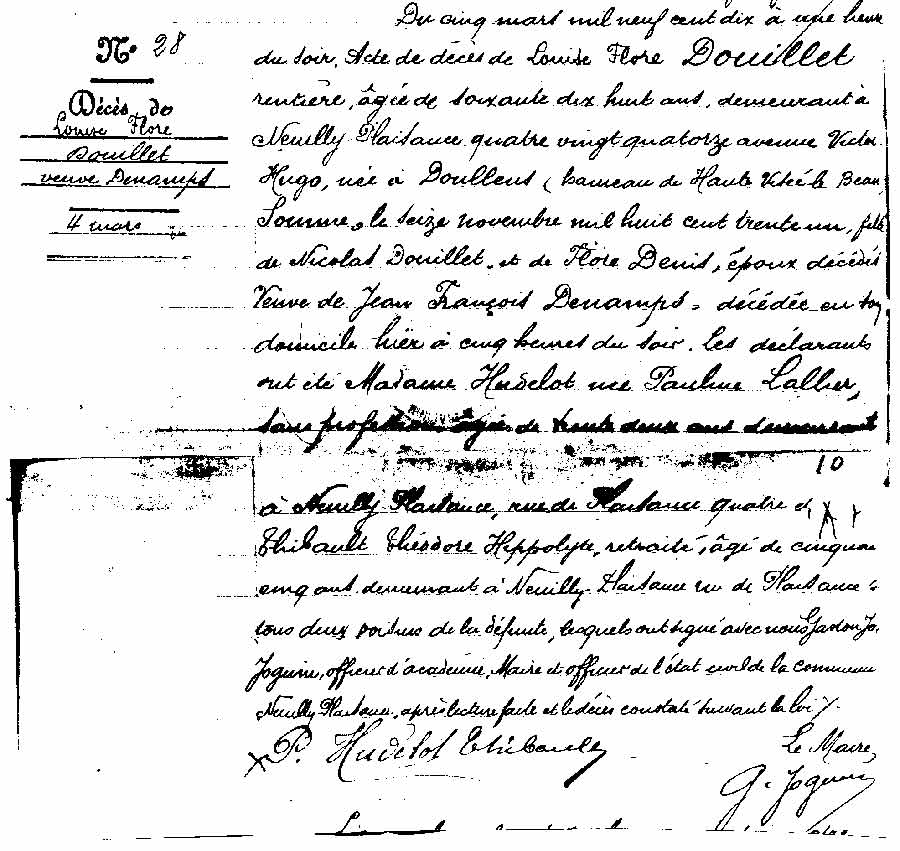 N° 28
Décès de
Louise Flore
Douillet
veuve Denamps
4 mars
Du cinq mars mil neuf cent dix à une heure
du soir, Acte de décès de Louise Flore Douillet
rentière, âgée de soixante dix huit ans, demeurant à
Neuilly Plaisance quatre vingt quatorze avenue Victor
Hugo, née à Doullens (hameau de Haute Visée le Beau
Somme, le seize novembre mil huit cent trente un, fille
de Nicolas Douillet, et de Flore Denis, époux décédés
Veuve de Jean François Denamps, décédée en son
domicile hier à cinq heures du soir. Les déclarants
ont été Madame Hudelot née Pauline Lallier,
sans profession âgée de trente deux ans demeurant
10
à Neuilly Plaisance, rue de Plaisance quatre et
Thibault Théodore Hippolyte, retraité, âgé de cinquan
cinq ans demeurant à Neuilly Plaisance rue de Plaisance
tous deux voisins de la défunte, lesquels ont signé avec nous Gaston Jo
Joguin, officier d'académie, Maire et officier de l'état civil de la commune
Neuilly Plaisance, après lecture faite et le décès constaté suivant la loi ./.
P. Hudelot Thibault
Le Maire,
G. Joguin